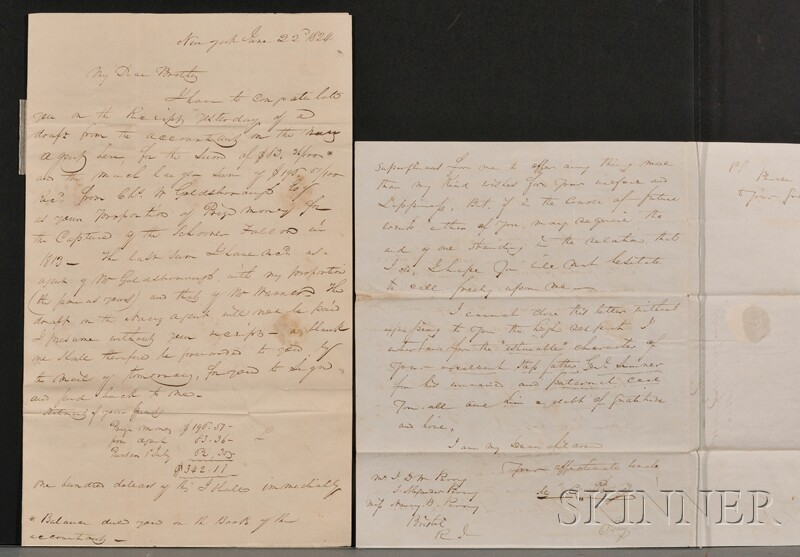 New york June 22d 1824
My Dear Brother
I have to congratulate
you on the Receipt yesterday of a
draft from the accountant on the Navy
Agent here for the sum of $63.
and the much larger sum of $196
from Chs. W Goldsborough Esqr
as your proportion of Prize money for
the Capture of the Schooner in
1813 — The last sum I have as
agent of Mr Goldsborough with my proportion
(the same as yours) and that of Mr Warner. The
draft on the Navy Agent will not be paid
I presume without your receipt —
shall therefore be forwarded to you by
the mail of tomorrow, for you to sign
and send back to me —
of your funds
Prize money $196.57
63.36
$342.11
One hundred dollars of this I shall immediately
* Balance due you on the Books of the
accountant —
from me to offer any thing more
than my kind wishes for your welfare and
Happiness. But, if in the course of future
events either of you may require the
aid of one standing in the relation that
I do, I hope you will not hesitate
to call freely upon me —
I cannot close this letter without
expressing to you the high respect I
entertain for the "estimable" character of
your excellent step father Genl
for his and paternal care
You all owe him a debt of gratitude
and love.
I am my Dear
Your affectionate Uncle
Perry
Mr J. D W Perry
J Alexander Perry
Miss Nancy B. Perry
Bristol
R I
PS
SKINNER